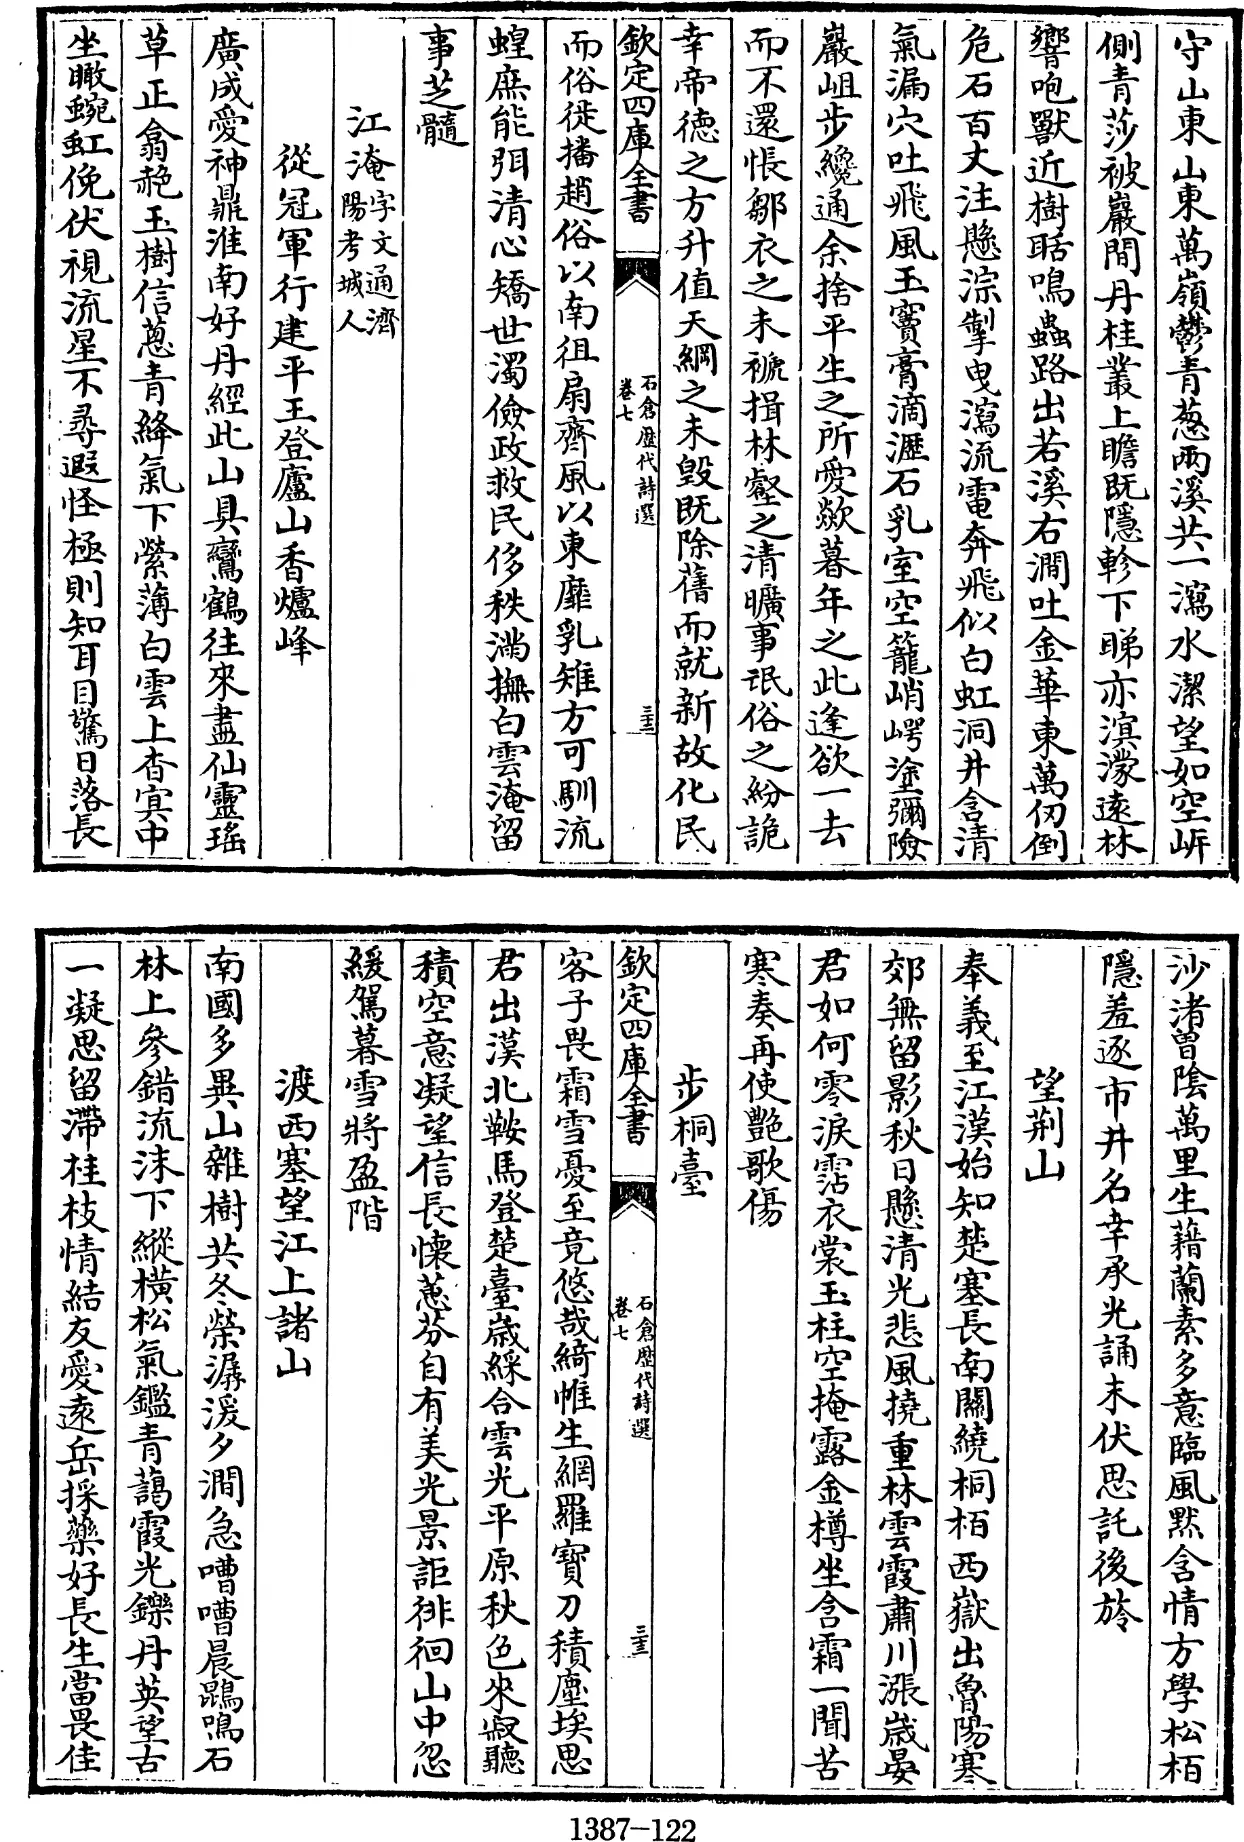 守山東山東萬嶺鬱青葱兩溪共一瀉水潔望如空岍
側青莎被巖間丹桂叢上瞻既隱軫下睇亦溟濛遠林
響咆獸近樹聒鳴蟲路出若溪右澗吐金華東萬仞倒
危石百丈注懸淙掣曳瀉流電奔飛似白虹洞井含清
氣漏穴吐飛風玉竇膏滴瀝石乳室空籠峭崿塗彌險
巖岨步纔通余捨平生之所愛歘暮年之此逢欲一去
而不還悵鄒衣之未褫揖林壑之清曠事氓俗之紛詭
幸帝德之方升值天綱之未毀既除舊而就新故化民
欽定四庫全書
石倉歷代詩選
卷七
三十二
而俗徙播趙俗以南徂扇齊風以東靡乳雉方可馴流
蝗庶能弭清心矯世濁儉政救民侈秩滿撫白雲淹留
事芝髓
江淹字文通濟陽考城人
從冠軍行建平王登廬山香爐峰
廣成愛神鼎淮南好丹經此山具鸞鶴往來盡仙靈瑤
草正翕赩玉樹信蔥青絳氣下縈薄白雲上杳冥中
坐瞰蜿虹俛伏視流星不尋遐怪極則知耳目驚日落長
沙渚曽陰萬里生藉蘭素多意臨風默含情方學松栢
隱羞逐市井名幸承光誦末伏思託後旍
望荆山
奉義至江漢始知楚塞長南關繞桐栢西嶽出魯陽寒
郊無留影秋日懸清光悲風撓重林雲霞肅川漲歲晏
君如何零淚霑衣裳玉柱空掩露金樽坐含霜一聞苦
寒奏再使艷歌傷
步桐臺
欽定四庫全書
石倉歷代詩選
卷七
三十三
客子畏霜雪憂至竟悠哉綺帷生網羅寳刀積塵埃思
君出漢北鞍馬登楚臺歲綵合雲光平原秋色來寂聽
積空意凝望信長懷蕙芬自有美光景詎徘徊山中忽
緩駕暮雪將盈階
渡西塞望江上諸山
南國多異山雜樹共冬榮潺湲夕澗急嘈嘈晨鵾鳴石
林上參錯流沫下縱橫松氣鑑青藹霞光鑠丹英望古
一凝思留滯桂枝情結友愛遠岳採藥好長生當畏佳
1387-122